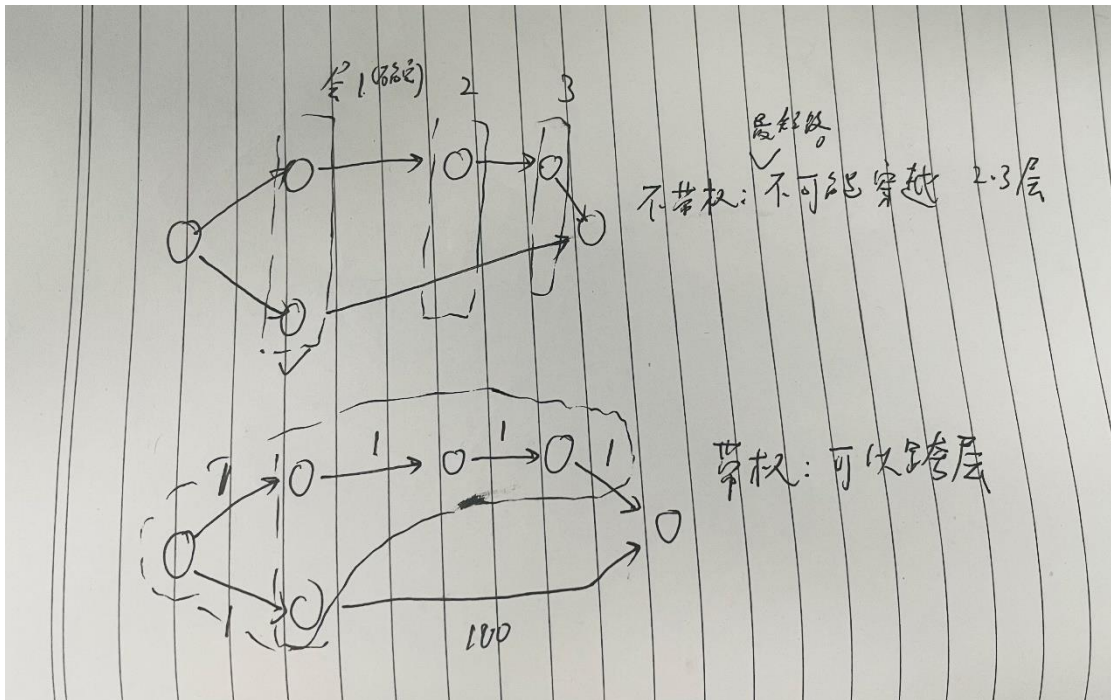 层1(确定) 2 3
最短路
不带权:不可能穿越 2.3层
1 1 1 1
带权:可以跨层
1
100